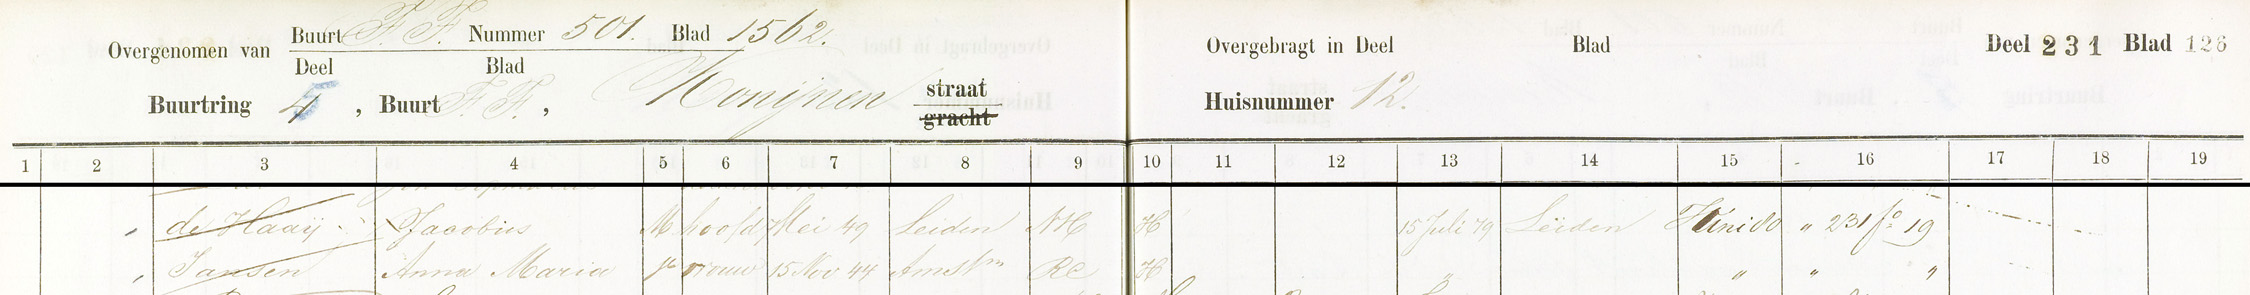 Overgenomen van Buurt F.F. Nummer 501. Blad 1562.
Deel Blad
Buurtring 5, Buurt F.F., Konijnen straat
gracht
Overgebragt in Deel Blad Deel 231 Blad 126
Huisnummer 12.
1 2 3 4 5 6 7 8 9 10 11 12 13 14 15 16 17 18 19
" de Haaij Jacobus M hoofd Mei 49 Leiden NH H 15 Juli 79 Leiden " 231 fo 19
" Jansen Anna Maria vr vrouw 15 Nov 44 Amstm RC H " " " "